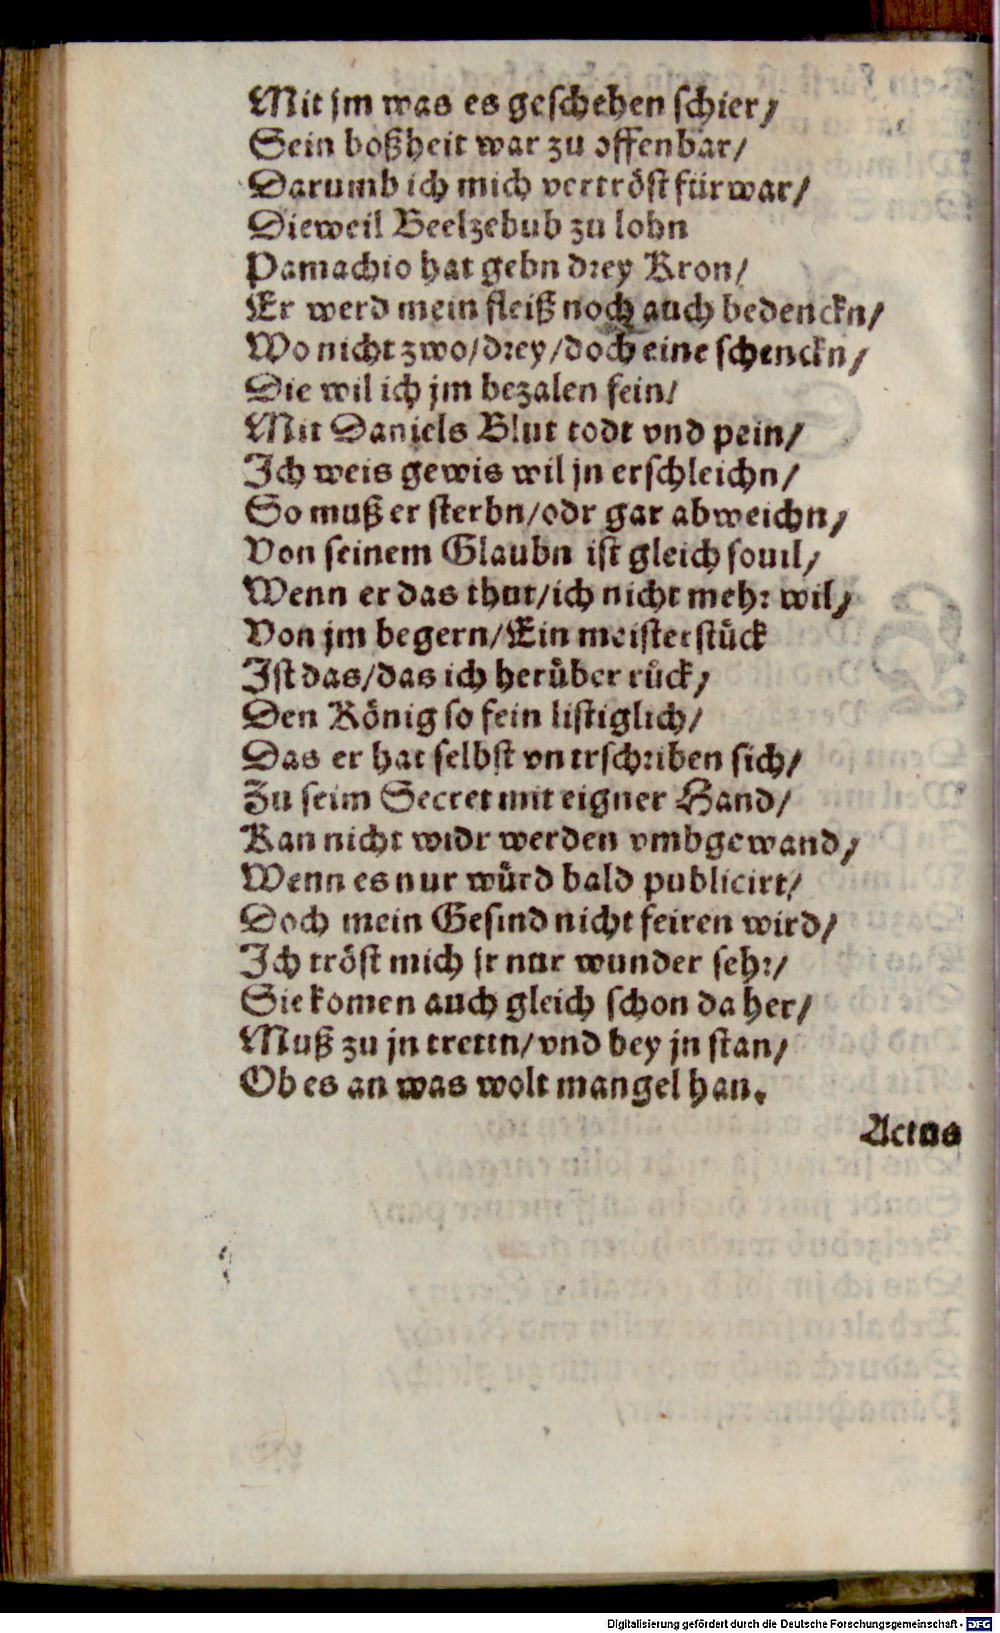 Mit jm was es geschehen schier/
Sein boßheit war zu offenbar/
Darumb ich mich vertröst fürwar/
Dieweil Beelzebub zu lohn
Pamachio hat gebn drey Kron/
Er werd mein fleiß noch auch bedenckn/
Wo nicht zwo/drey/doch eine schenckn/
Die wil ich jm bezalen fein/
Mit Daniels Blut todt vnd pein/
Ich weis gewis wil jn erschleichn/
So muß er sterbn/odr gar abweichn/
Von seinem Glaubn ist gleich souil/
Wenn er das thut/ich nicht mehr wil/
Von jm begern/Ein meisterstück
Ist das/das ich herüber rück/
Den König so fein listiglich/
Das er hat selbst vntrschriben sich/
Zu seim Secret mit eigner Hand/
Kan nicht widr werden vmbgewand/
Wenn es nur würd bald publicirt/
Doch mein Gesind nicht feiren wird/
Ich tröst mich jr nur wunder sehr/
Sie komen auch gleich schon da her/
Muß zu jn trettn/vnd bey jn stan/
Ob es an was wolt mangel han.
Actus
Digitalisierung gefördert durch die Deutsche Forschungsgemeinschaft - DFG